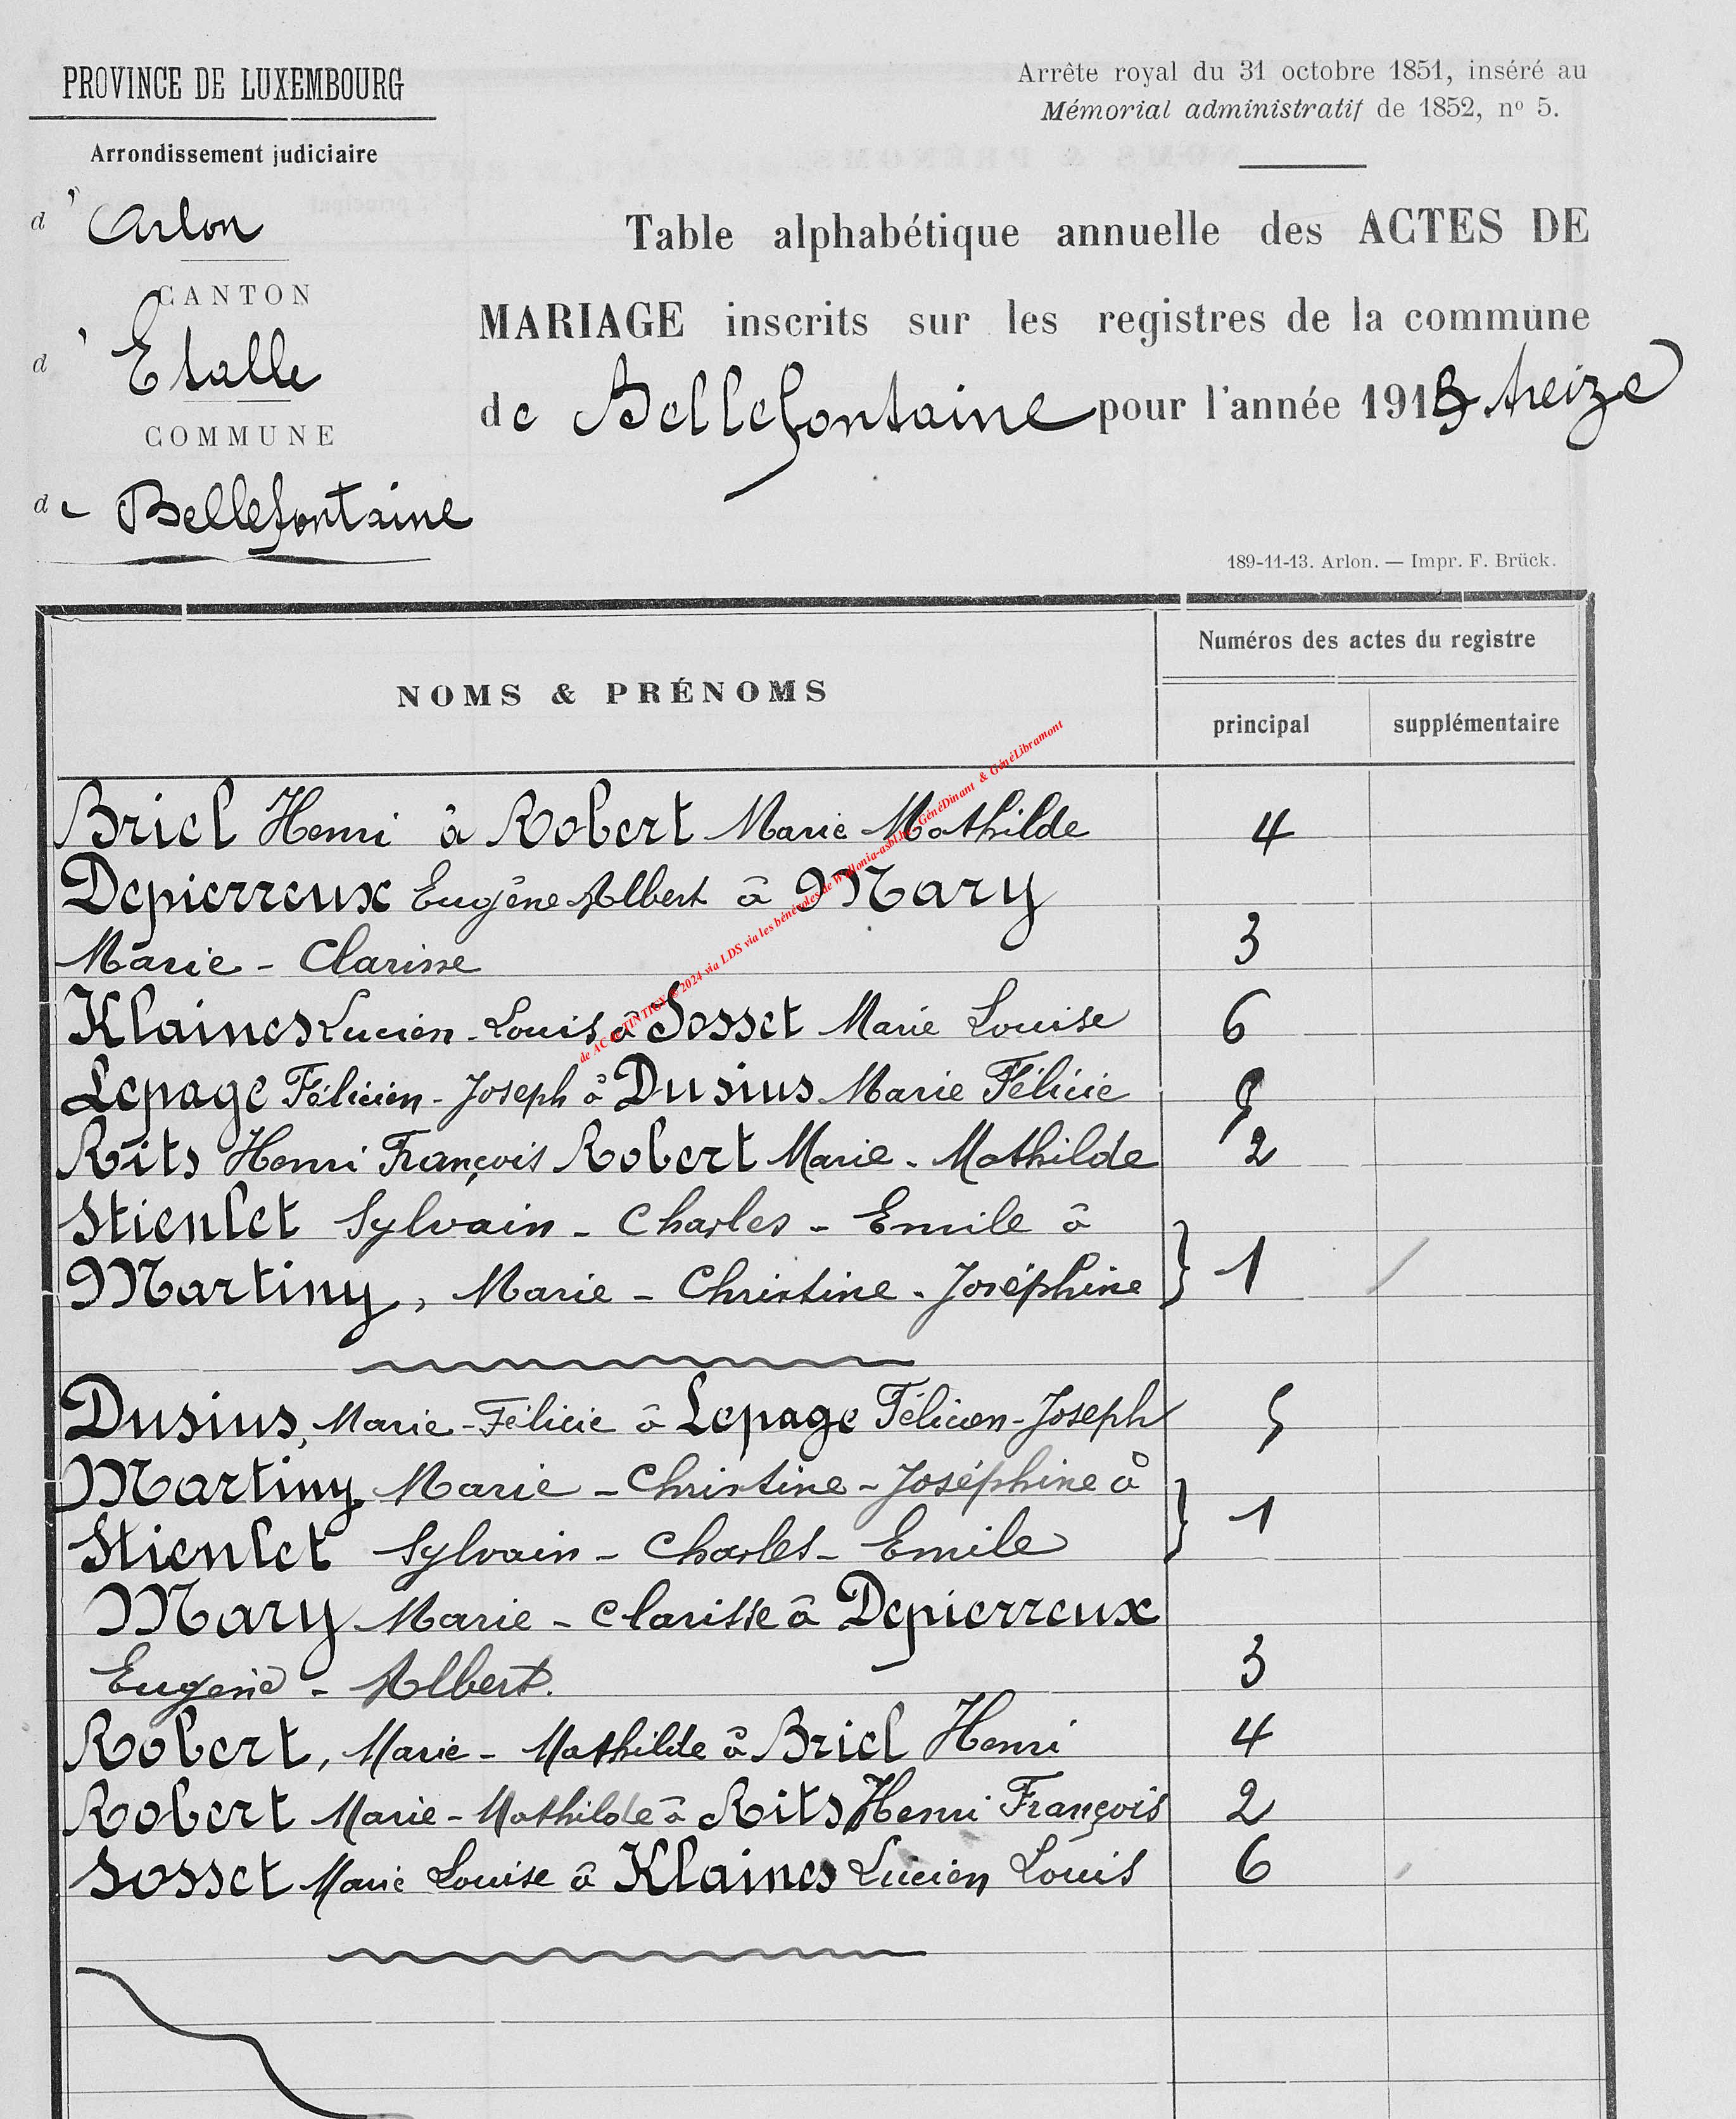 PROVINCE DE LUXEMBOURG
Arrondissement judiciaire
d'Arlon
CANTON
d'Etalle
COMMUNE
de Bellefontaine
Arrête royal du 31 octobre 1851, inséré au
Mémorial administratif de 1852, nº 5.
Table alphabétique annuelle des ACTES DE
MARIAGE inscrits sur les registres de la commune
de Bellefontaine pour l'année 1913 treize
189-11-13. Arlon. — Impr. F. Brück.
NOMS & PRÉNOMS
Numéros des actes du registre
principal supplémentaire
Briel Henri à Robert Marie Mathilde 4
Depierreux Eugène Albert à Mary
Marie - Clarisse 3
Klaines Lucien - Louis à Sosset Marie Louise 6
Lepage Félicien - Joseph à Dusius Marie Félicie 5
Rits Henri François Robert Marie - Mathilde 2
Stienlet Sylvain - Charles - Emile à
Martiny, Marie - Christine - Joséphine } 1
Dusius, Marie - Félicie à Lepage Félicien - Joseph 5
Martiny Marie - Christine - Joséphine à
Stienlet Sylvain - Charles - Emile } 1
Mary Marie - Clarisse à Depierreux
Eugène - Albert. 3
Robert, Marie - Mathilde à Briel Henri 4
Robert Marie - Mathilde à Rits Henri François 2
Sosset Marie Louise à Klaines Lucien Louis 6
2024 via LDS via les bénévoles de Wallonia-asbl GénéDinant & GénéLibramont